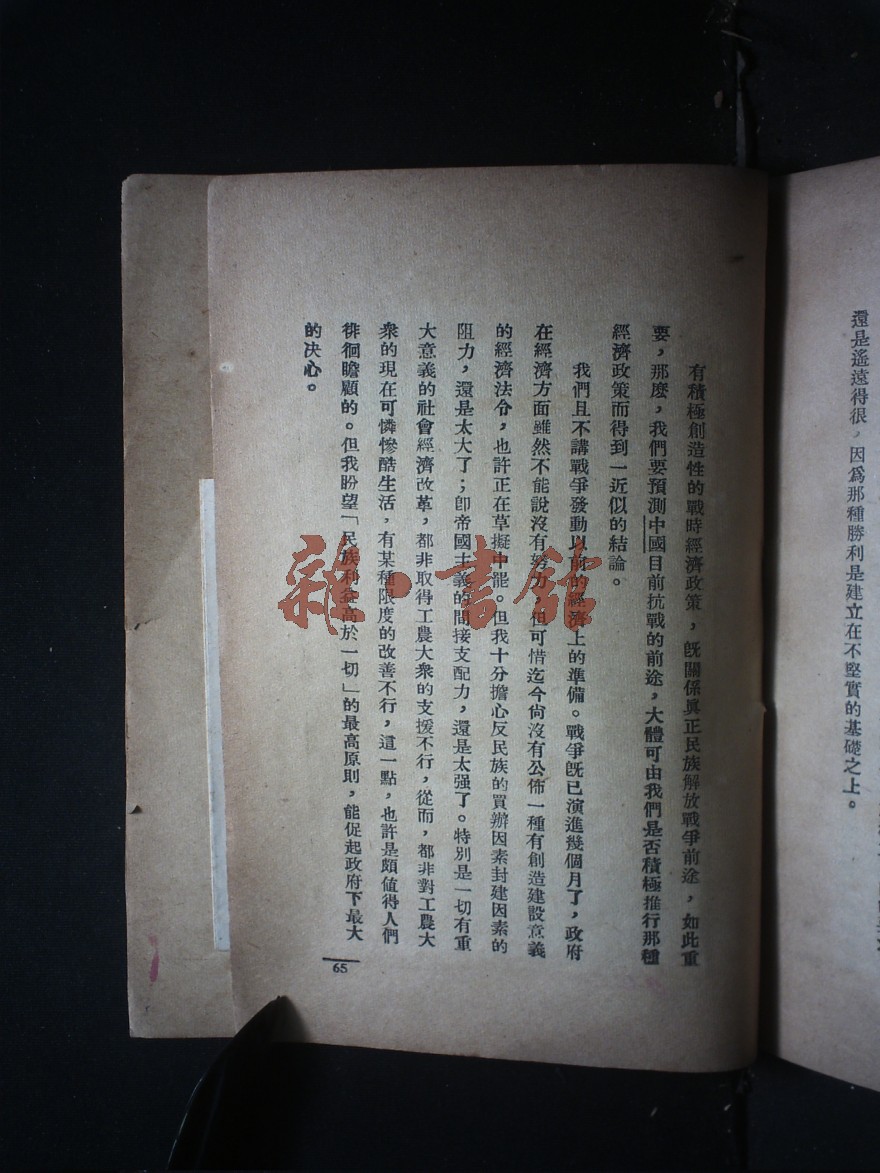 還是遙遠得很，因爲那種勝利是建立在不堅實的基礎之上。
有積極創造性的戰時經濟政策，旣關係眞正民族解放戰爭前途，如此重
要，那麽，我們要預測中國目前抗戰的前途，大體可由我們是否積極推行那種
經濟政策而得到一近似的結論。
我們且不講戰爭發動以前的經濟上的準備。戰爭旣已演進幾個月了，政府
在經濟方面雖然不能說沒有努力，但可惜迄今尙沒有公佈一種有創造建設意義
的經濟法令，也許正在草擬中罷。但我十分擔心反民族的買辦因素封建因素的
阻力，還是太大了；卽帝國主義的間接支配力，還是太强了。特別是一切有重
大意義的社會經濟改革，都非取得工農大衆的支援不行，從而，都非對工農大
衆的現在可憐慘酷生活，有某種限度的改善不行，這一點，也許是頗値得人們
徘徊瞻顧的。但我盼望「民族利益高於一切」的最高原則，能促起政府下最大
的決心。
65
雜·書館